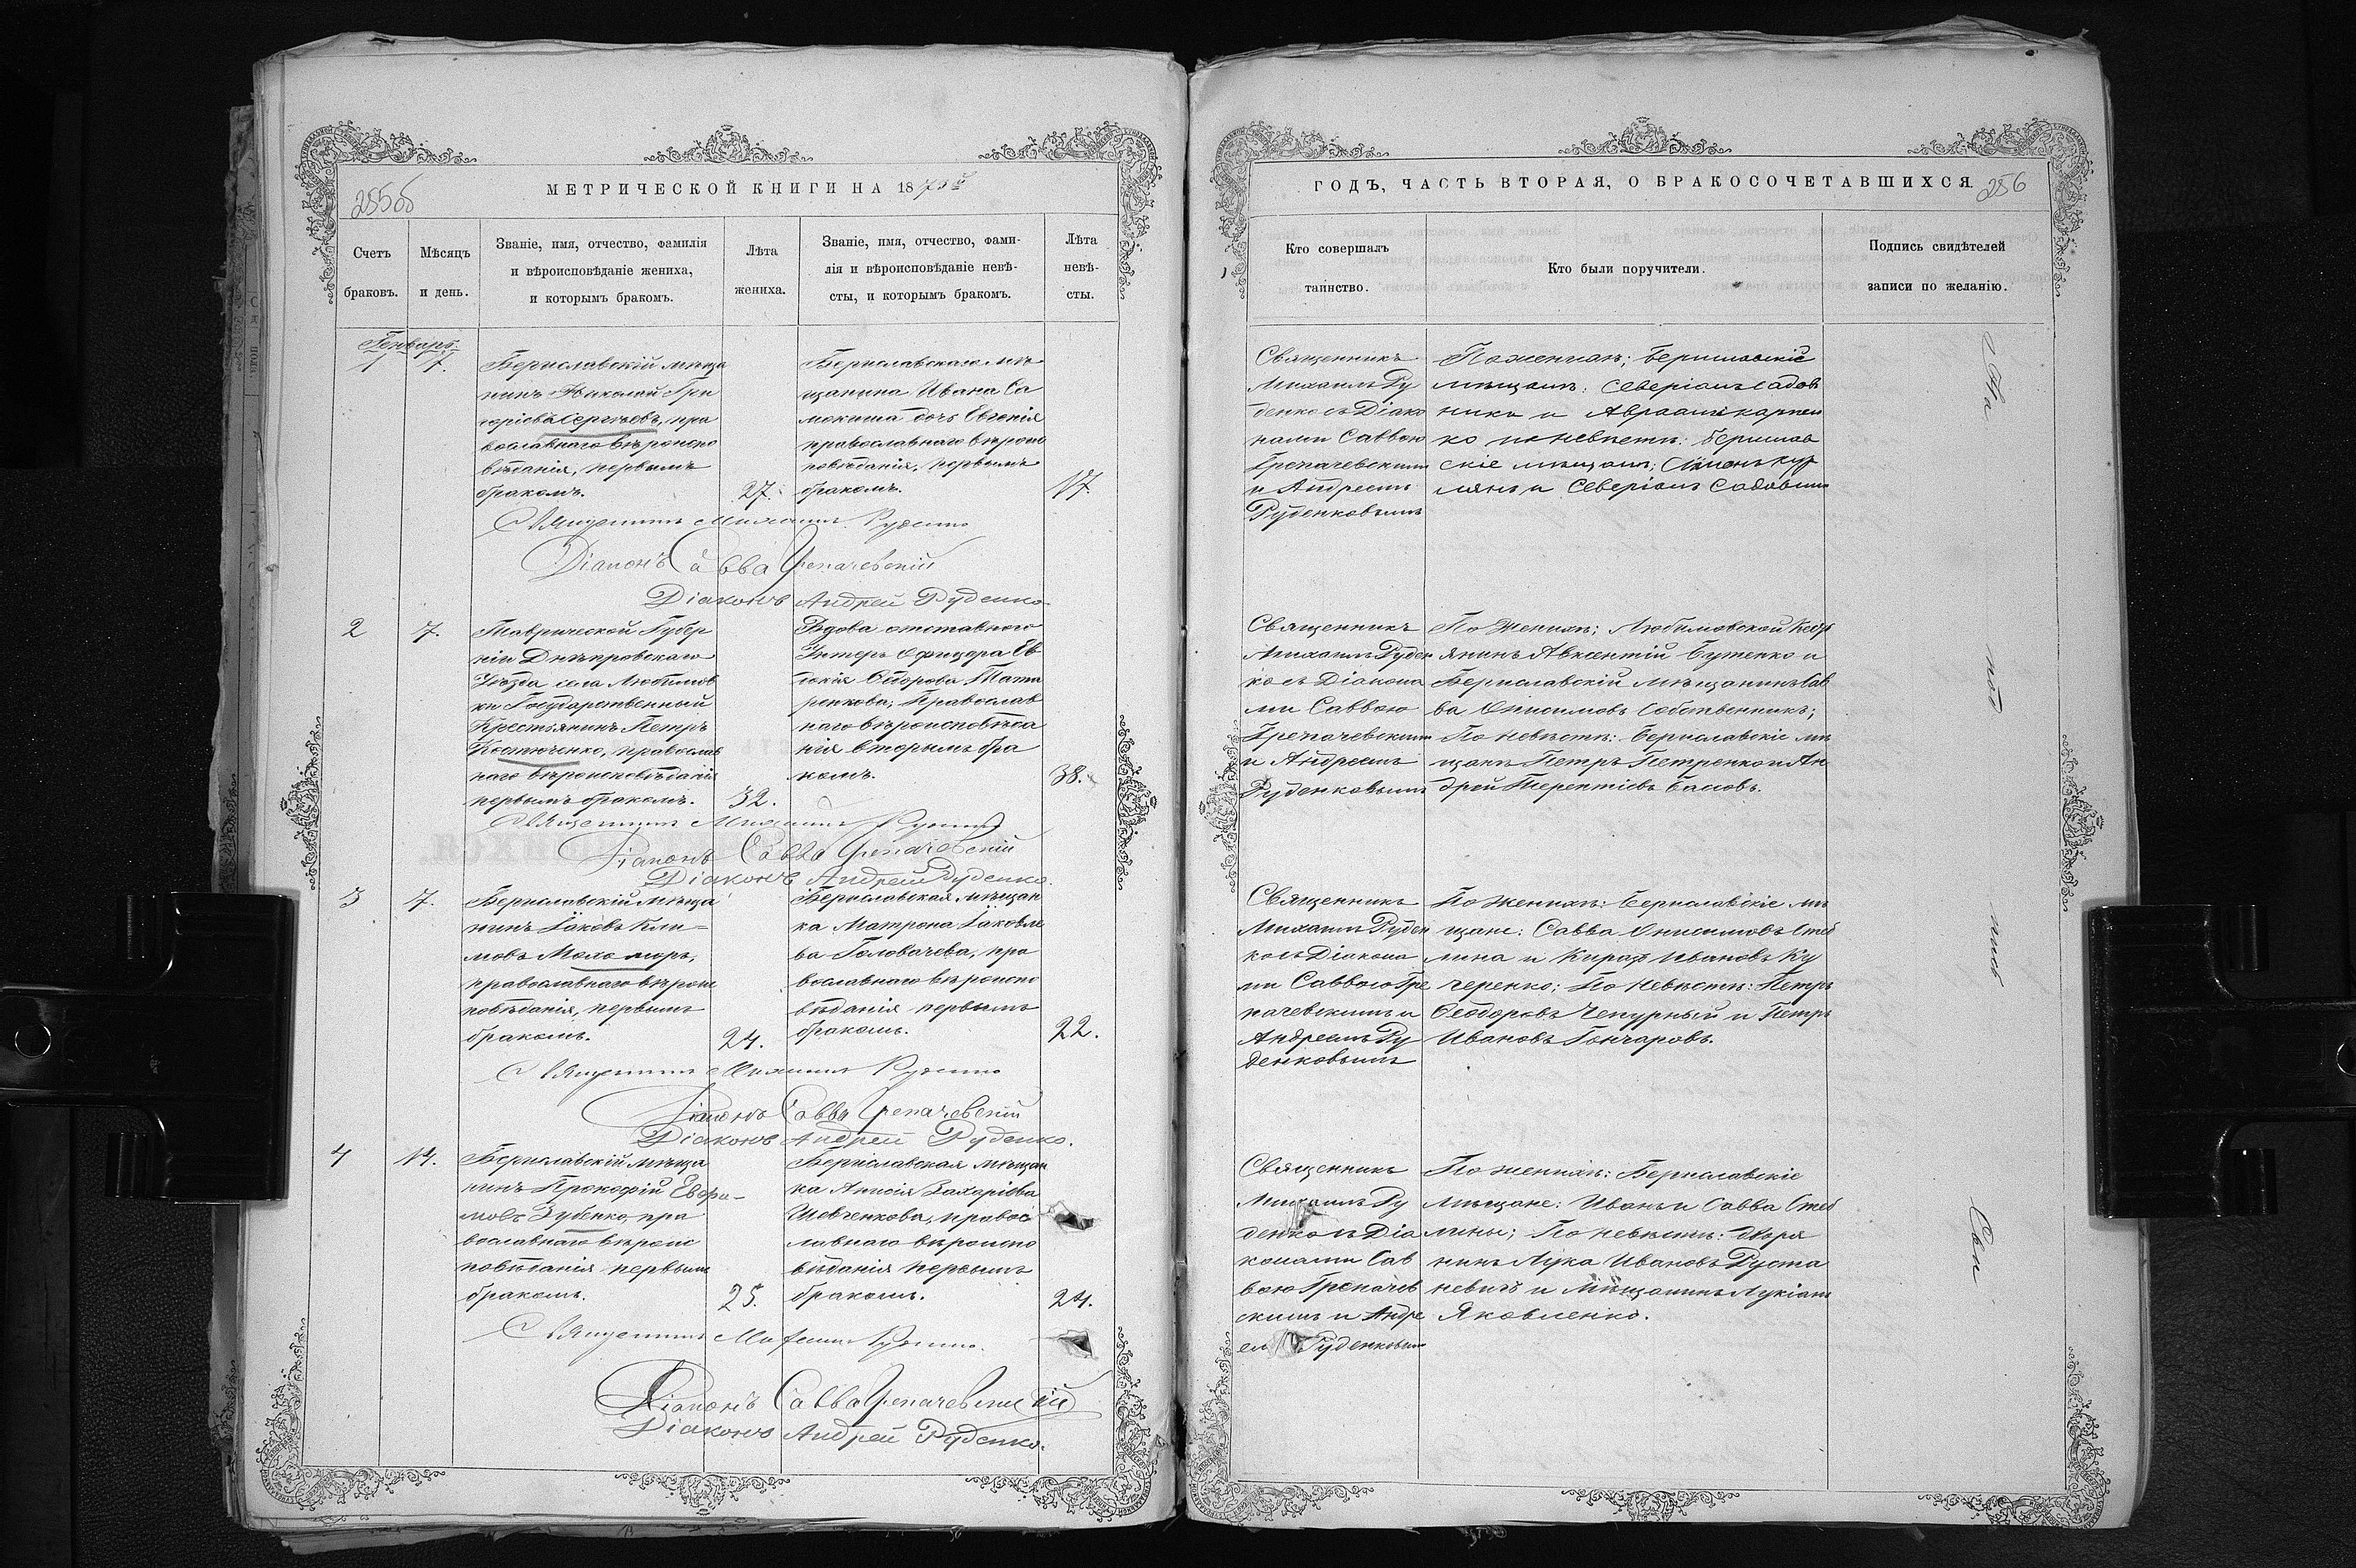 МЕТРИЧЕСКОЙ КНИГИ НА 1873й
255об
Счетъ браковъ.
Мѣсяцъ и день.
Званіе, имя, отчество, фамилія
и вѣроисповѣданіе жениха,
и которымъ бракомъ.
Лѣта
жениха.
Званіе, имя, отчество, фами-
лія и вѣроисповѣданіе невѣ-
сты, и которымъ бракомъ.
Лѣта
невѣ-
сты.
Генварь
1
7.
Бериславскій мѣща
нинъ Николай Гри
горіевъ Сергѣевъ, пра
вославнаго вѣроиспо
вѣданія, первымъ
бракомъ.
27.
Бериславскаго мѣ
щанина Ивана Са
мокиша дочь Евгенія
православнаго вѣроис
повѣданія, первымъ
бракомъ.
17.
Священникъ Михаилъ Руденко
Діаконъ Савва Грепачевскій
Діаконъ Андрей Руденко.
2
7.
Таврической Губер
ніи Днѣпровскаго
Уѣзда села Любимов
ки Государственный
Крестьянинъ Петръ
Костюченко, православ
наго вѣроисповѣданія
первымъ бракомъ.
32.
Вдова отставного
Унтеръ Офицера Ев
докія Ѳедорова Тата
ренкова, Православ
наго вѣроисповѣда
нія вторымъ бра
комъ.
38.
Священникъ Михаилъ Руденко
Діаконъ Савва Грепачевскій
Діаконъ Андрей Руденко.
3
7.
Бериславскій мѣща
нинъ Іаковъ Кли=
мовъ
православнаго вѣроис
повѣданія, первымъ
бракомъ.
24.
Бериславская мѣщан
ка Матрона Іаковле
ва Головачева, пра
вославнаго вѣроиспо
вѣданія первымъ
бракомъ.
22.
Священникъ Михаилъ Руденко
Діаконъ Савва Грепачевскій
Діаконъ Андрей Руденко.
4
14.
Бериславскій мѣща
нинъ Прокофій
Зубенко, пра
вославнаго вѣроис
повѣданія первымъ
бракомъ.
25.
Бериславская мѣщан
ка Анисія Захаріова
Шевченкова, правос
лавнаго вѣроиспо
вѣданія первымъ
бракомъ.
24.
Священникъ Михаилъ Руденко.
Діаконъ Савва Грепачевскій
Діаконъ Андрей Руденко.
ГОДЪ, ЧАСТЬ ВТОРАЯ, О БРАКОСОЧЕТАВШИХСЯ.
256
Кто совершалъ
таинство.
Кто были поручители.
Подпись свидѣтелей
записи по желанію.
Священникъ
Михаилъ Ру
денко съ Діако
нами Саввою
Грепачевскимъ
и Андреемъ
Руденковымъ
По женихѣ; Бериславскіе
мѣщане: Северіанъ Садов
никъ и Авраамъ Карпен
ко по невѣстѣ: Берислав
скіе мѣщане;
и Северіанъ Садовник
Священникъ
Михаилъ Руден
ко съ Діакона
ми Саввою
Грепачевскимъ
и Андреемъ
Руденковымъ
По Женихѣ; Любимовской Крест
янинъ Авксентій Бутенко и
Бериславскій мѣщанинъ Сав
ва Онисимовъ Собственникъ;
По невѣстѣ: Бериславскіе мѣ
щане Петръ Петренко и Ан
дрей Терентіевъ Басовъ.
Священникъ
Михаилъ Руден
ко съ Діакона
ми Саввою Гре
пачевскимъ и
Андреемъ Ру
денковымъ
По Женихѣ: Бериславскіе мѣ
щане: Савва Онисимовъ Стеб
лина и Ивановъ Ку
черенко; По Невѣстѣ: Петръ
Ѳеодоровъ Чепурный и Петръ
Ивановъ Гончаровъ.
Священникъ
Михаилъ Ру
денко съ Діа
конами Сав
вою Грепачев
скимъ и Андре
емъ Руденковым
По женихѣ: Бериславскіе
мѣщане: Иванъ и Савва Стеб
лины; По невѣстѣ: Дворя
нинъ Лука Ивановъ Руста
невичъ и Мѣщанинъ Лукіанъ
Яковленко.